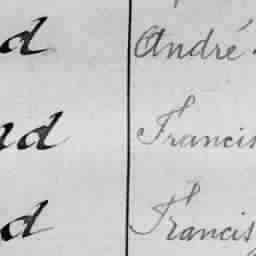 d André
nd Francis
d Francis